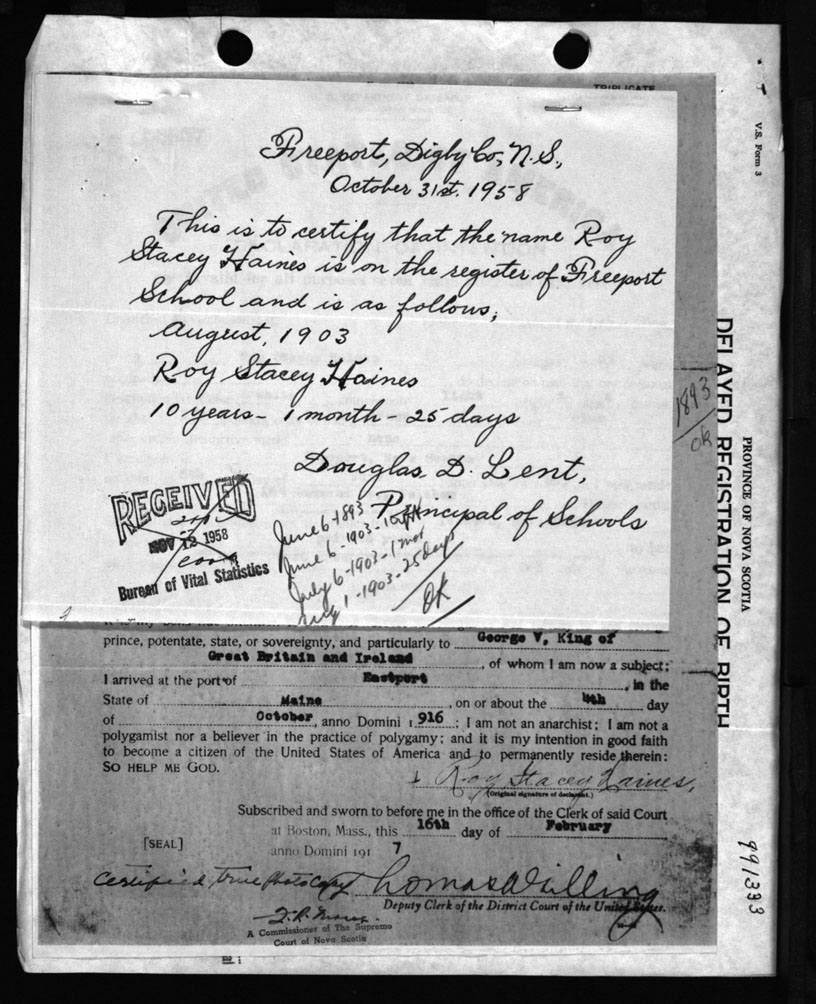 TRIPLICATE
V.S. Form 3
Freeport, Digby Co, N.S.,
October 31st. 1958
This is to certify that the name Roy
Stacey Haines is on the register of Freeport
School and is as follows;
August, 1903
Roy Stacey Haines
10 years - 1 month - 25 days
Douglas D. Lent,
Principal of Schools
RECEIVED
NOV 12 1958
Bureau of Vital Statistics
June 6 - 1893
June 6 - 1903 - 10
July 6 - 1903 - 1
1 - 1903 - 25 days
OK
1893
ok
PROVINCE OF NOVA SCOTIA
DELAYED REGISTRATION OF BIRTH
991333
prince, potentate, state, or sovereignty, and particularly to George V, King of
Great Britain and Ireland, of whom I am now a subject;
I arrived at the port of Eastport, in the
State of Maine, on or about the 4th day
of October, anno Domini 1916; I am not an anarchist; I am not a
polygamist nor a believer in the practice of polygamy; and it is my intention in good faith
to become a citizen of the United States of America and to permanently reside therein:
SO HELP ME GOD.
Roy Stacey Haines,
(Original signature of declarant.)
Subscribed and sworn to before me in the office of the Clerk of said Court
at Boston, Mass., this 16th day of February
[SEAL] anno Domini 1917
Certified true photocopy
Deputy Clerk of the District Court of the United States.
A Commissioner of The Supreme
Court of Nova Scotia